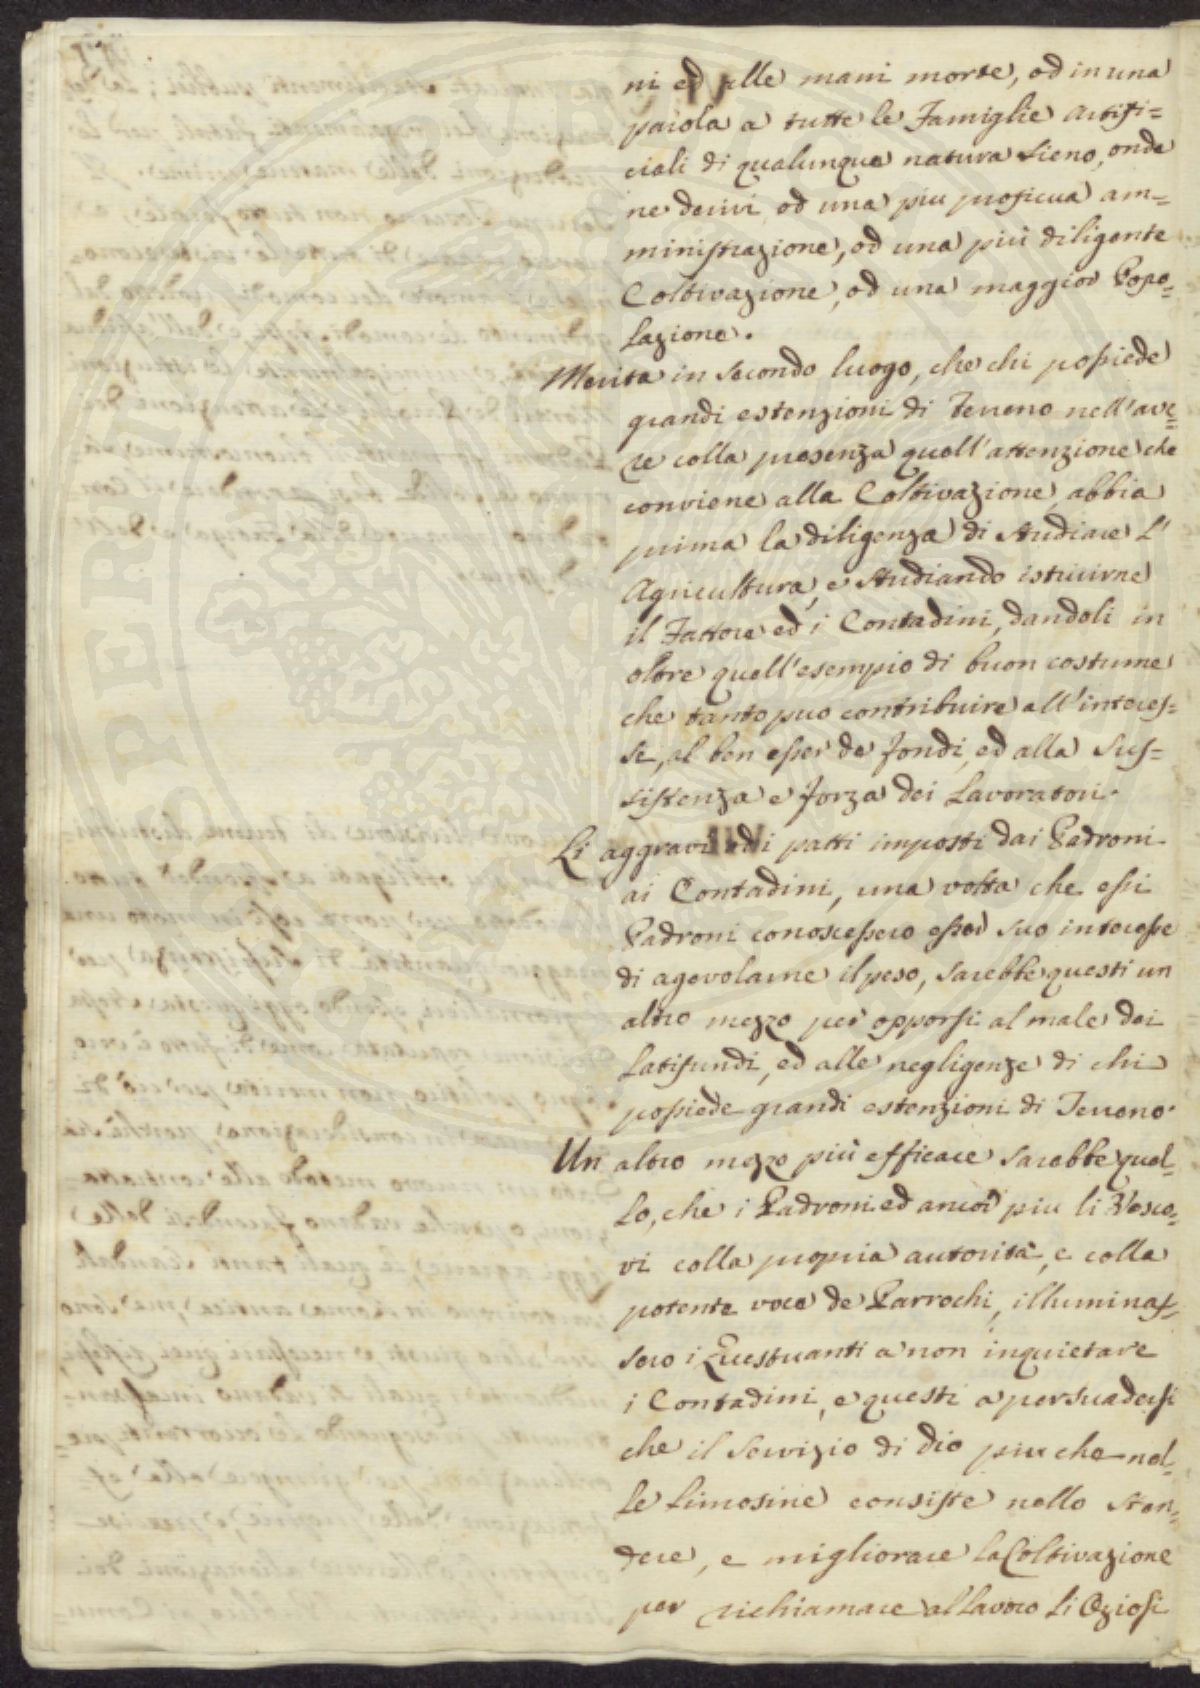 ni ed alle mani morte, od in una
parola a tutte le Famiglie artifi=
ciali di qualunque natura sieno, onde
ne derivi od una piu proficua am=
ministrazione, od una più diligente
Coltivazione, od una maggior Popo=
lazione.
Merita in secondo luogo, che chi possiede
grandi estenzioni di Terreno nell'ave=
re colla presenza quell'attenzione che
conviene alla Coltivazione, abbia
prima la diligenza di studiare l'
Agricultura, e studiando istruirne
il Fattore ed i Contadini, dandoli in
oltre quell'esempio di buon costume
che tanto puo contribuire all'interes=
se, al ben esser de fondi, ed alla sus=
sistenza e forza dei Lavoratori.
Li aggravi ed i patti imposti dai Padroni
ai Contadini, una volta che essi
Padroni conoscessero esser suo interesse
di agevolarne il peso, sarebbe questi un
altro mezzo per opporsi al male dei
Latifundi, ed alle negligenze di chi
possiede grandi estenzioni di Terreno.
Un altro mezzo più efficace sarebbe quel=
lo, che i Padroni ed ancor piu li Vesco=
vi colla propria autorità, e colla
potente voce de Parrochi, illuminas=
sero i Questuanti a non inquietare
i Contadini, e questi a persuadersi
che il servizio di dio piu che nel=
le Limosine consiste nello sten=
dere, e migliorare la Coltivazione
per richiamare al Lavoro li Oziosi